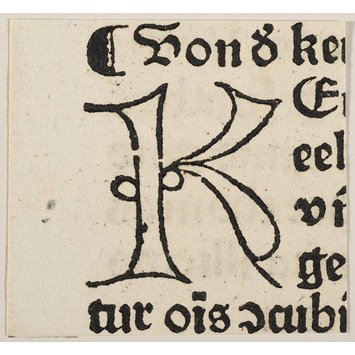 ¶ Von ð ke
K Er
eel
vi
ge
tur oīs ↄcubi